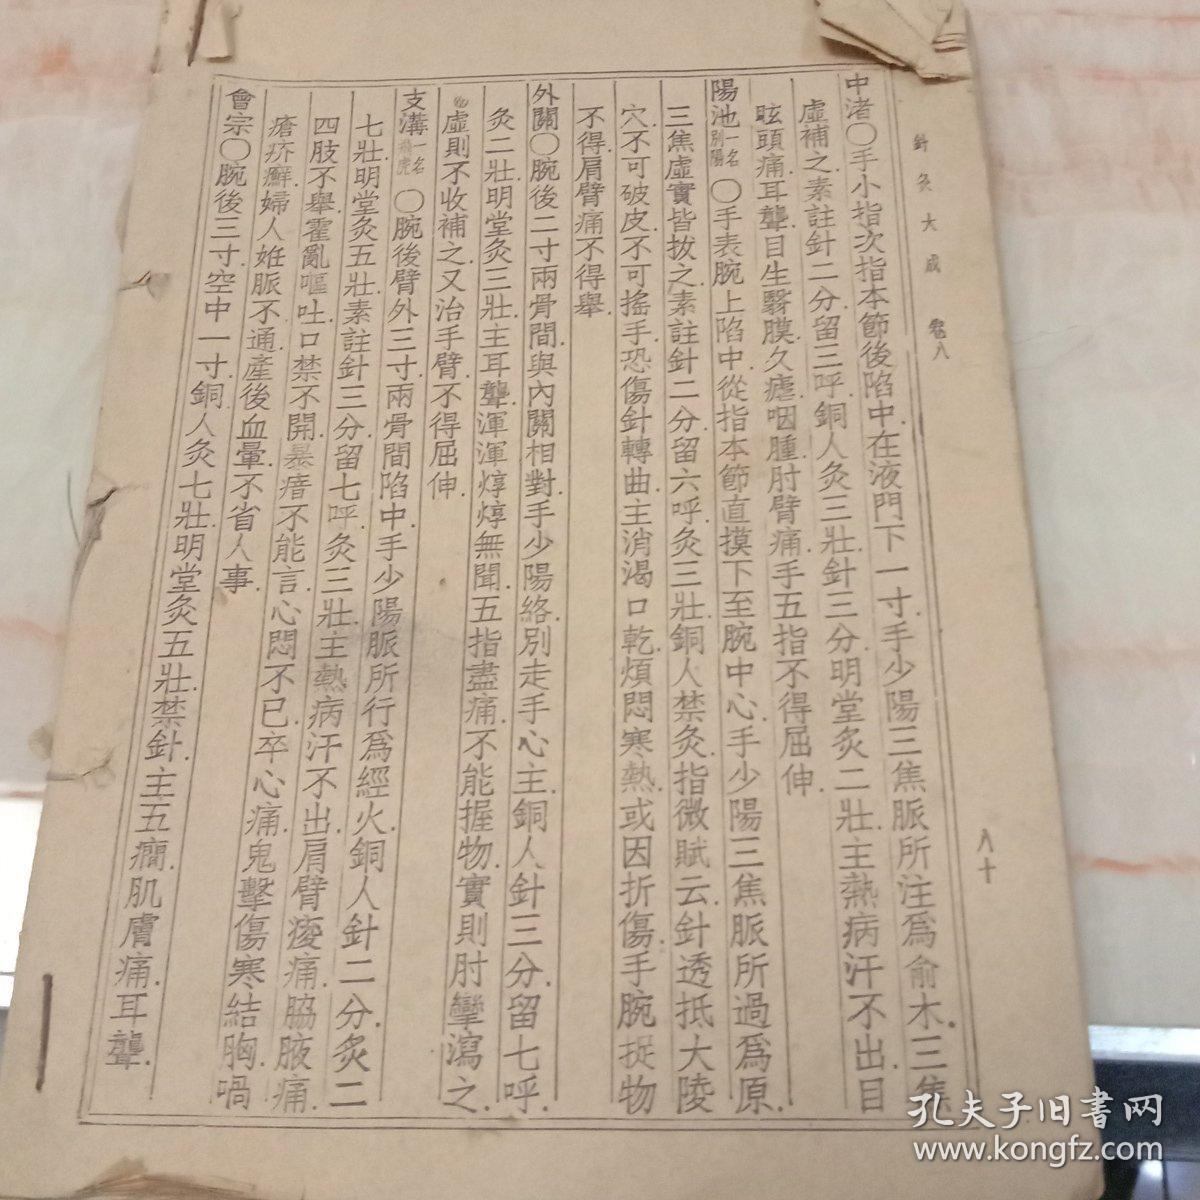 針灸大成 卷八
八十
中渚〇手小指次指本節後陷中.在液門下一寸.手少陽三焦脈所注爲俞木.三焦
虛補之.素註針二分.留三呼.銅人灸三壯.針三分.明堂灸二壯.主熱病汗不出.目
眩頭痛.耳聾.目生翳膜.久瘧.咽腫.肘臂痛.手五指不得屈伸.
陽池一名別陽〇手表腕上陷中.從指本節直摸下至腕中心.手少陽三焦脈所過爲原.
三焦虛實皆拔之.素註針二分.留六呼.灸三壯.銅人禁灸.指微賦云.針透抵大陵
穴.不可破皮.不可搖手.恐傷針轉曲.主消渴口乾.煩悶寒熱.或因折傷.手腕捉物
不得.肩臂痛不得舉.
外關〇腕後二寸兩骨間.與內關相對.手少陽絡.別走手心主.銅人針三分.留七呼.
灸二壯.明堂灸三壯.主耳聾.渾渾焞焞無聞.五指盡痛.不能握物.實則肘攣.瀉之.
虛則不收.補之.又治手臂.不得屈伸.
支溝一名飛虎〇腕後臂外三寸.兩骨間陷中.手少陽脈所行爲經火.銅人針二分.灸二
七壯.明堂灸五壯.素註針三分.留七呼.灸三壯.主熱病汗不出.肩臂痠痛.脇腋痛.
四肢不舉.霍亂嘔吐.口禁不開.暴瘖不能言.心悶不已.卒心痛.鬼擊傷寒結胸.喎
瘡疥癬.婦人姙脈不通.產後血暈.不省人事.
會宗〇腕後三寸.空中一寸.銅人灸七壯.明堂灸五壯.禁針.主五癇.肌膚痛.耳聾.
孔夫子旧書网
www.kongfz.com